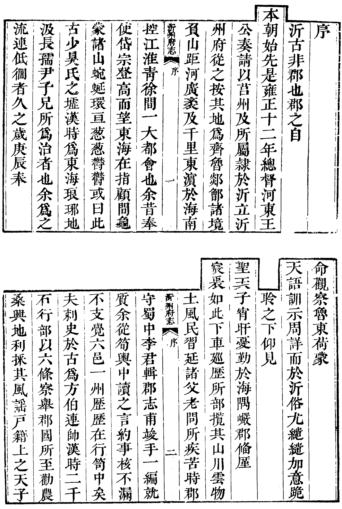 序
沂古非郡也郡之自
本朝始先是雍正十二年總督河東王
公奏請以莒州及所屬隸於沂立沂
州府從之按其地爲齊魯郯鄫諸境
負山距河廣袤及千里東濵於海南
沂州府志 序 一
控江淮青徐間一大都會也余昔奉
使岱宗登高而望東海在指顧間龜
蒙諸山蜿蜒環亘葱葱鬱鬱或曰此
古少昊氏之墟漢時爲東海琅琊地
汲長孺尹子兄所爲治者也余爲之
流連低徊者久之歲庚辰奉
命觀察魯東荷蒙
天語訓示周詳而於沂俗尤繾繾加意跪
聆之下仰見
聖天子宵旰憂勤於海隅巖郡倚厪
宸衷如此下車廵歷所部攬其山川雲物
土風民習延諸父老問所疾苦時郡
沂州府志 序 二
守蜀中李君輯郡志甫竣手一編就
質余從筍輿中讀之言約事核不漏
不支覺六邑一州歴歴在行笥中矣
夫刺史於古爲方伯連帥漢時二千
石行部以六條察舉郡國所至勸農
桒興地利採其風謡戸籍上之天子